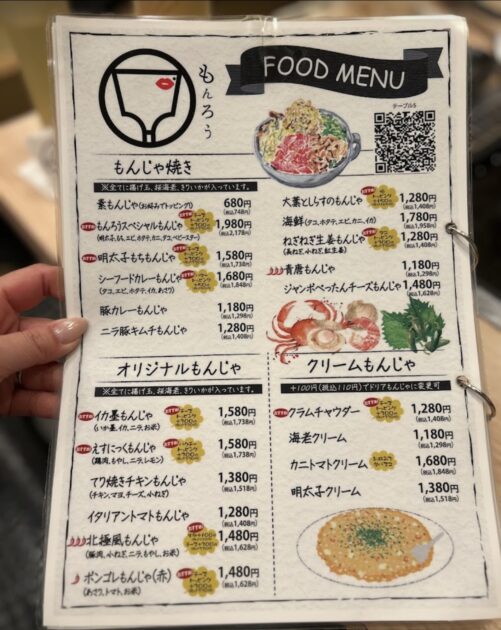 もんろう
FOOD MENU
テーブル5
もんじゃ焼き
※全てに揚げ玉、桜海老、きりいかが入っています。
素もんじゃ(お好みでトッピング) 680円
(税込748円)
おすすめ もんろうスペシャルもんじゃ 1,980円
(明太子、もち、エビ、ホタテ、カニ、タコ、ベビースター) (税込2,178円)
おすすめ 明太子もちもんじゃ 1,580円
(税込1,738円)
シーフードカレーもんじゃ 1,680円
(タコ、エビ、ホタテ、イカ、あさり) (税込1,848円)
豚カレーもんじゃ 1,180円
(税込1,298円)
ニラ豚キムチもんじゃ 1,280円
(税込1,408円)
大葉としらすのもんじゃ おすすめ 1,280円
(税込1,408円)
海鮮(タコ、ホタテ、エビ、カニ、イカ) 1,780円
(税込1,958円)
ねぎねぎ生姜もんじゃ おすすめ 1,280円
(長ねぎ、小ねぎ、紅生姜) (税込1,408円)
青唐もんじゃ 1,180円
(税込1,298円)
ジャンボべったんチーズもんじゃ 1,480円
(税込1,628円)
オリジナルもんじゃ
※全てに揚げ玉、桜海老、きりいかが入っています。
イカ墨もんじゃ おすすめ 1,580円
(いか墨、イカ、ニラ、お米) (税込1,738円)
えすにっくもんじゃ おすすめ 1,580円
(鶏肉、もやし、ニラ、レモン) (税込1,738円)
てり焼きチキンもんじゃ 1,380円
(チキン、マヨ、チーズ、小ねぎ) (税込1,518円)
イタリアントマトもんじゃ 1,280円
(税込1,408円)
北極風もんじゃ おすすめ 1,480円
(豚肉、小ねぎ、ニラ、もやし、お米) (税込1,628円)
ボンゴレもんじゃ(赤) おすすめ 1,480円
(あさり、トマト、お米) (税込1,628円)
クリームもんじゃ
+100円(税込110円)でドリアもんじゃに変更可
おすすめ クラムチャウダー おすすめ 1,280円
(税込1,408円)
海老クリーム 1,180円
(税込1,298円)
カニトマトクリーム 1,680円
(税込1,848円)
明太子クリーム 1,380円
(税込1,518円)